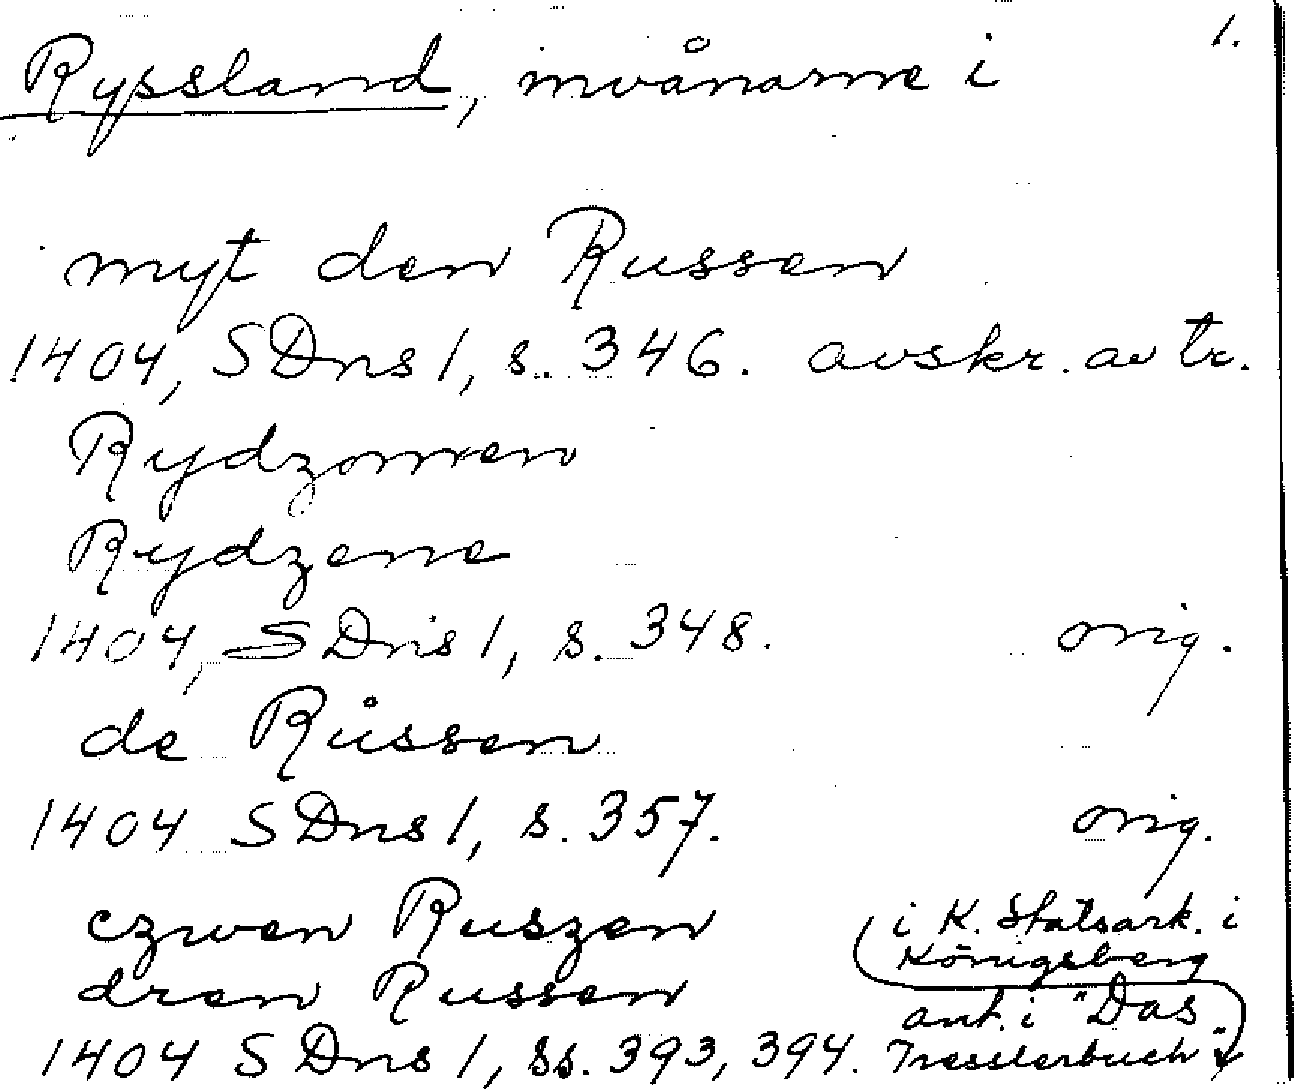 1.
Ryssland, invånarne i
myt den Russen
1404, SDns 1, s. 346. avskr. av tr.
Rydzomen
Rydzene
1404, SDns 1, s. 348. orig.
de Růssen
1404 SDns 1, s. 357. orig.
czwen Ruszen
i K. Statsark. i
Königsberg
dren Russen
ant. i "Das
1404 SDns 1, ss. 393, 394. Tresslerbuch"